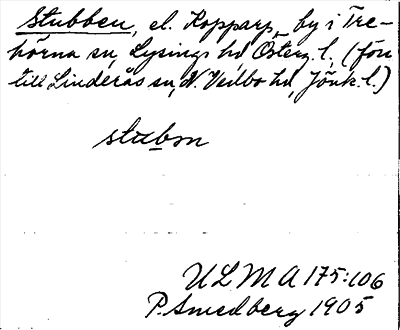 Stubben, el. Kopparp, by i Tre-
hörna sn, Lysings hd, Österg. l. (förr
till Linderås sn, N. Vedbo hd, Jönk. l.)
stubm
ULMA 175:106
P. Smedberg 1905